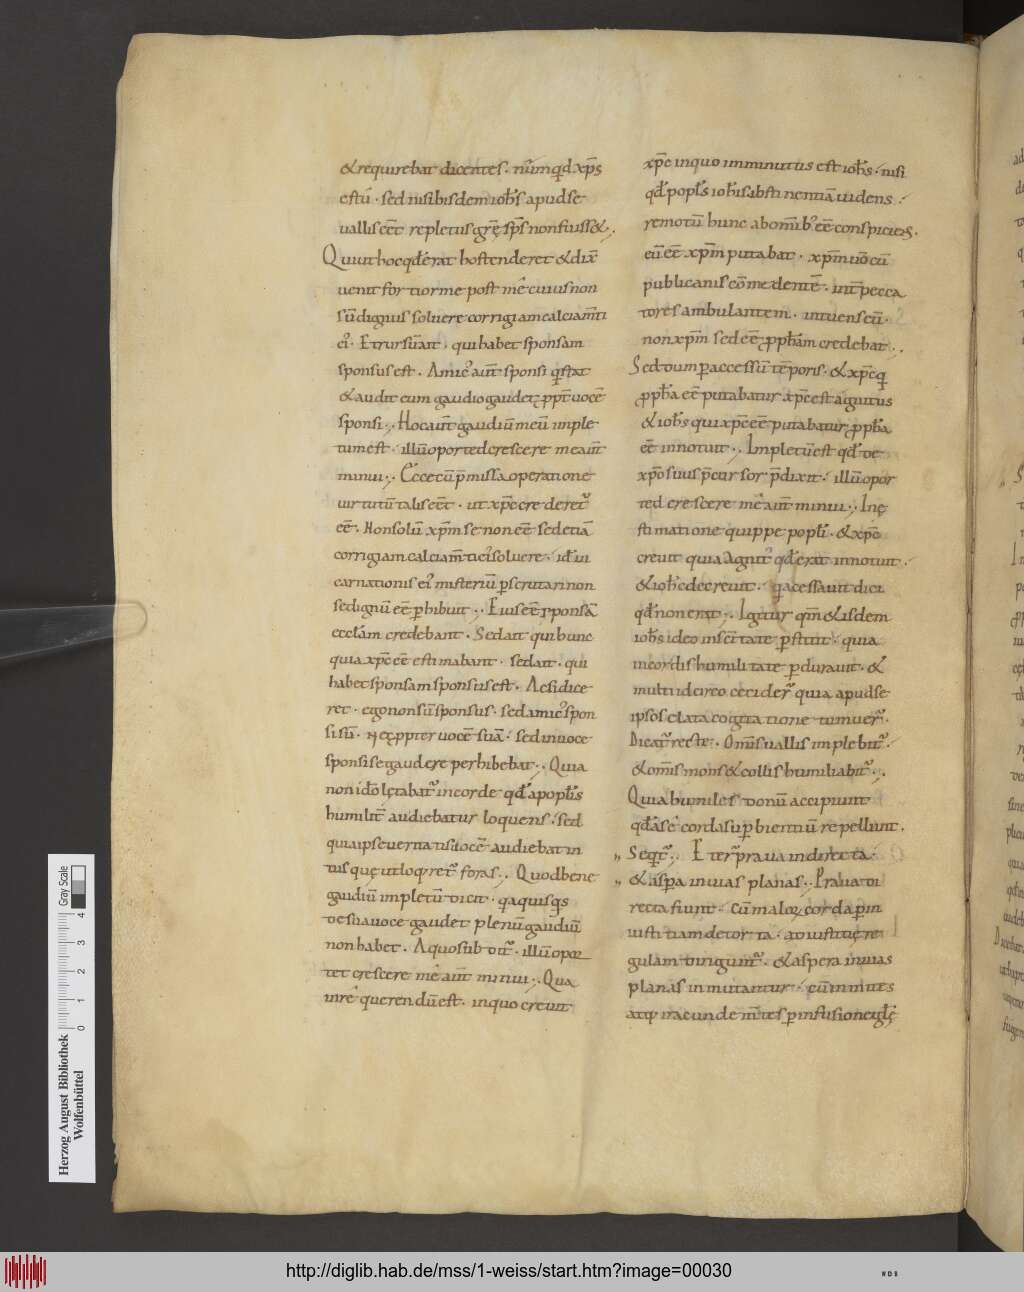 &requirebat dicentes· nūmqd xp̄s
ess& · sed nisi bis dem ioh̄s apud se
uallis eēt repletus grę̄ sp̄s non fuiss&·,
Qui ut hoc qđ erat hostenderet & dix̄
uenit fortior me post mē cuius non
sū dignus soluere corrigiam calciam̄ti
ei᾽· Et rursū ait · qui habet sponsam
sponsus est · Amic᾽ aūt sponsi q̄ stat
& audit eum gaudio gaudet ꝓpt̄ uocē
sponsi·, Hoc aūt gaudiū meū imple
tum est · illū oported crescere me aūt
minui·, Ecce cū p̄missa operatione
uirtutū talis eēt · ut xp̄c crederet᾽
eē · Non solū xp̄m se non eē sed etiā
corrigiam calciam̄ti ei᾽ soluere · id ē in
carnationis ei᾽ misteriū p̱scrutari non
se dignū eē p̱hibuit ·, Eius eē sponsā
eccłam credebant · Sed ait qui hunc
quia xp̄c eē estimabant · sed ait · qui
habet sponsam sponsus est · Ac si dice
ret · ego non sū sponsus · sed amic᾽ spon
si sū · nec ꝓpter uocē suā · sed in uoce
sponsi se gaudere perhibebat·, Quia
non id̄o lętabat᾽ in corde qđ a poplīs
humilit̄ audiebatur loquens · sed
quia ipse ueritatis uocē audiebat in
tus quę ut loqret᾽ foras·, Quod bene
gaudiū impletū dicit · qa quisqs
de sua uoce gaudet plenū gaudiū
non habet · A quo subdit᾽ · illū opor
tet crescere mē aūt minui·, Qua
in re querendū est · in quo creuit
xp̄c in quo imminutus est ioh̄s · nisi
qđ popłs ioh̄is abstinentiā uidens ·
remotū hunc ab om̄ib᾽ eē conspiciens·
eū eē xp̄m putabat · xp̄m uō cū
publicanis cōmedentē · int̄ pecca
tores ambulantem · intuens eū ·
non xp̄m sed eē ꝓph̄am credebat·,
Sed dum p̱ accessū tēporis · & xp̄c q
ꝓph̄a eē putabatur xp̄c est agnitus
& ioh̄s qui xp̄c eē putabatur ꝓph̄a
eē innotuit ·, Impletū est qđ de
xp̄o suus p̄cursor p̄dixit · illū opor
ted crescere me aūt minui·, In ę
stimatione quippe popłi · & xp̄c
creuit quia agnit᾽ qđ erat innotuit ·
& ioh̄s decreuit · qa cessauit dici
qđ non erat·, Igitur qm̄ & isdem
ioh̄s ideo in sc̄itate p̱stitit · quia
in cordis humilitate p̱durauit · &
multi idcirco cecider᾽ quia apud se
ipsos elata cogitatione tumuer᾽·
Dicat᾽ recte· Om̄is uallis implebit᾽ ·
& om̄is mons & collis humiliabit᾽·,
Quia humiles donū accipiunt
qđ a se corda superbientiū repellunt·
„ Seqt᾽·, Et er᾽ praua in directa ·
„ & asp̱a in uias planas·, Praua di
recta fiunt · cū maloꝝ corda p̱ in
iustitiam detorta · ad iustitię re
gulam dirigunt᾽ · & aspera in uias
planas inmutantur · cū inmites
atq; iracunde m̄tes p̱ infusionē